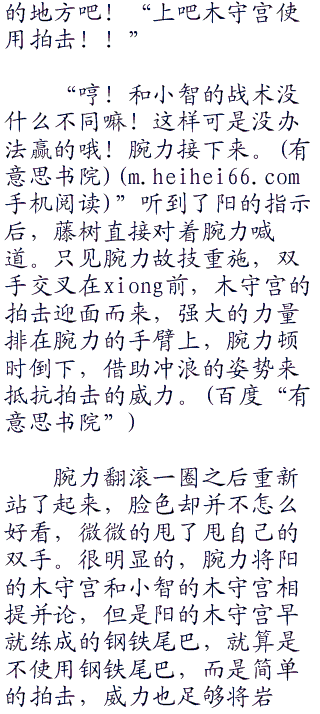 的地方吧！“上吧木守宫使
用拍击！！”
“哼！和小智的战术没
什么不同嘛！这样可是没办
法赢的哦！腕力接下来。(有
意思书院)(m.heihei66.com
手机阅读)”听到了阳的指示
后，藤树直接对着腕力喊
道。只见腕力故技重施，双
手交叉在xiong前，木守宫的
拍击迎面而来，强大的力量
排在腕力的手臂上，腕力顿
时倒下，借助冲浪的姿势来
抵抗拍击的威力。(百度“有
意思书院”)
腕力翻滚一圈之后重新
站了起来，脸色却并不怎么
好看，微微的甩了甩自己的
双手。很明显的，腕力将阳
的木守宫和小智的木守宫相
提并论，但是阳的木守宫早
就练成的钢铁尾巴，就算是
不使用钢铁尾巴，而是简单
的拍击，威力也足够将岩